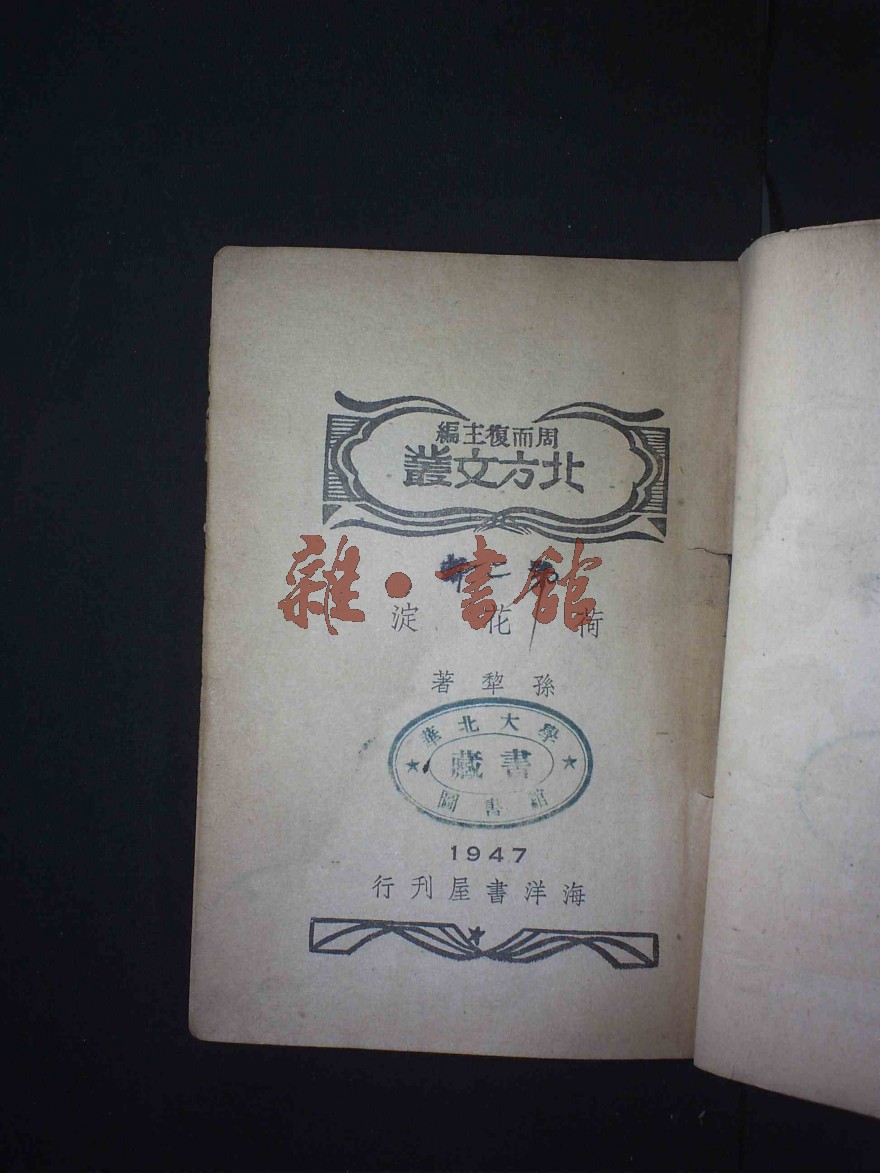 周而復主編
北方文叢
雜·書館
荷花淀
孫犁著
華北大學
藏書
圖書館
1947
海洋書屋刊行